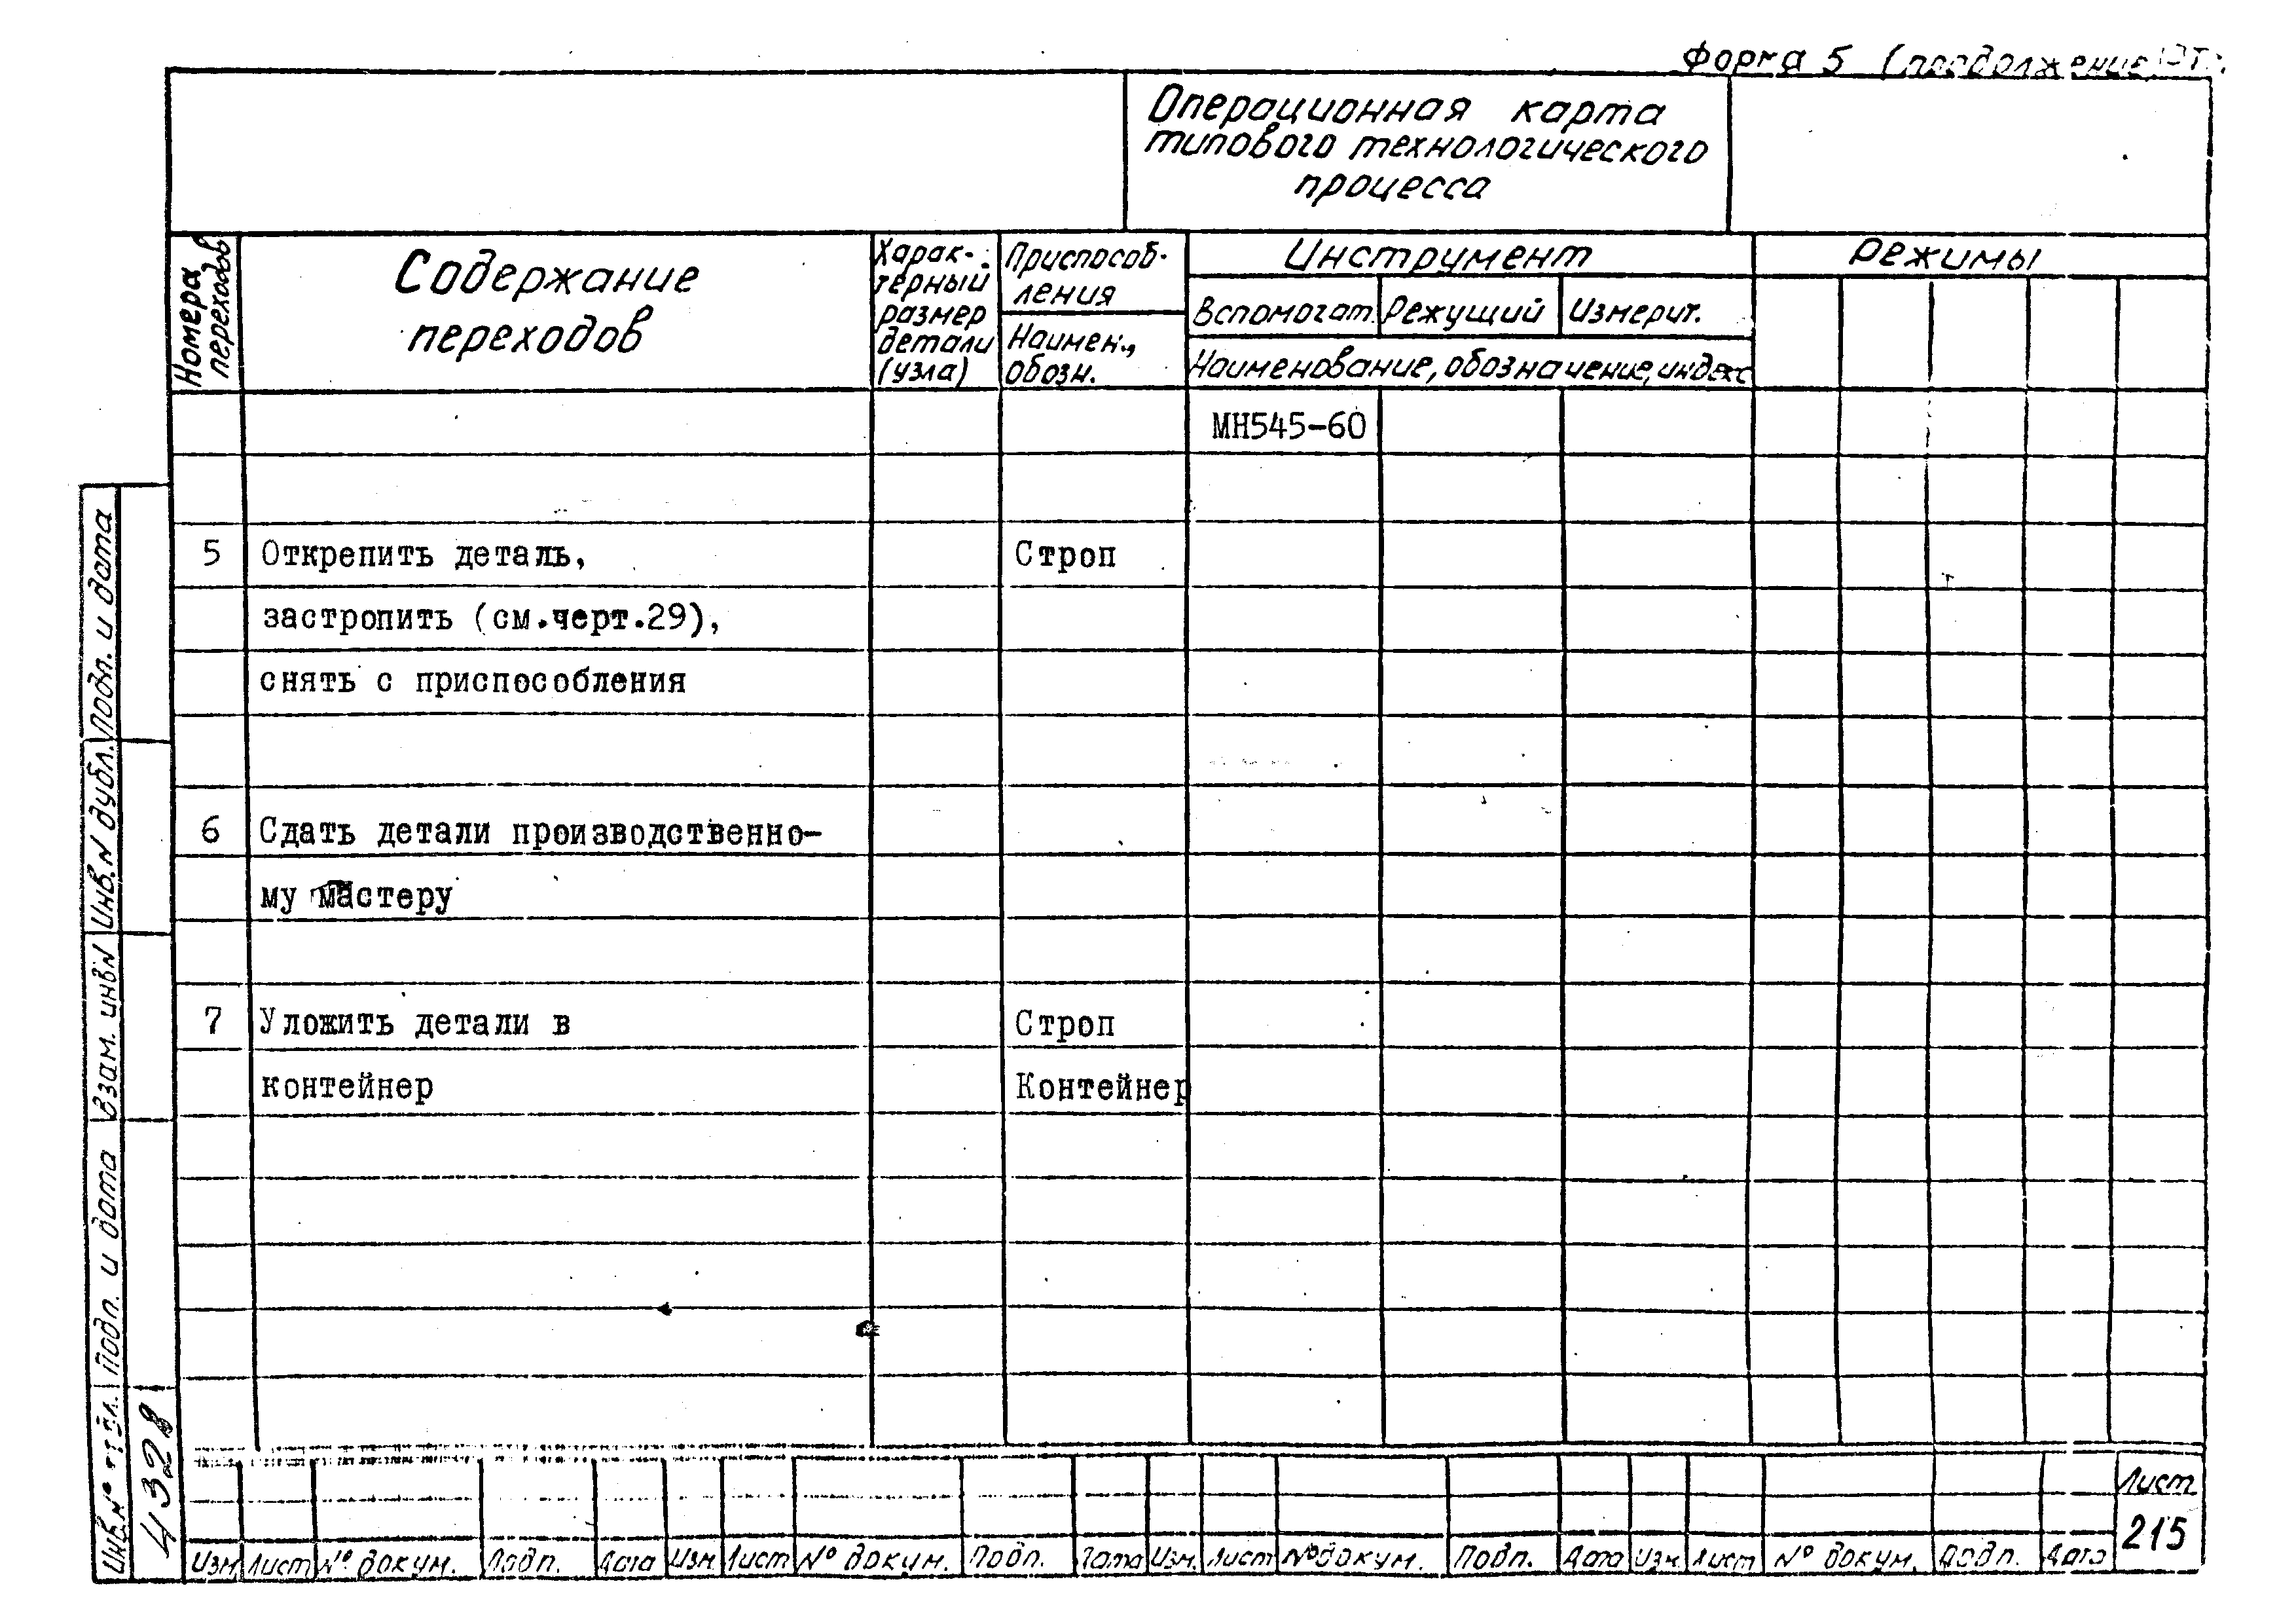 Форма 5 (продолжение)
Операционная карта
типового технологического
процесса
Номера
переходов
Содержание
переходов
Харак-
терный
размер
детали
(узла)
Приспособ-
ления
Наимен.,
обозн.
Инструмент
Вспомогат. Режущий Измерит.
Наименование, обозначение, индекс
Режимы
МН545-60
5 Открепить деталь, Строп
застропить (см.черт.29),
снять с приспособления
6 Сдать детали производственно-
му мастеру
7 Уложить детали в Строп
контейнер Контейнер
Подп. и дата
Инв.N дубл.
Взам. инвN
Подп. и дата
Инв.N°
432
Изм Лист N° докум. Подп. Дата Изм Лист N° докум. Подп. Дата Изм. Лист N° докум. Подп. Дата Изм. Лист N° докум. Подп. Дата
Лист
215